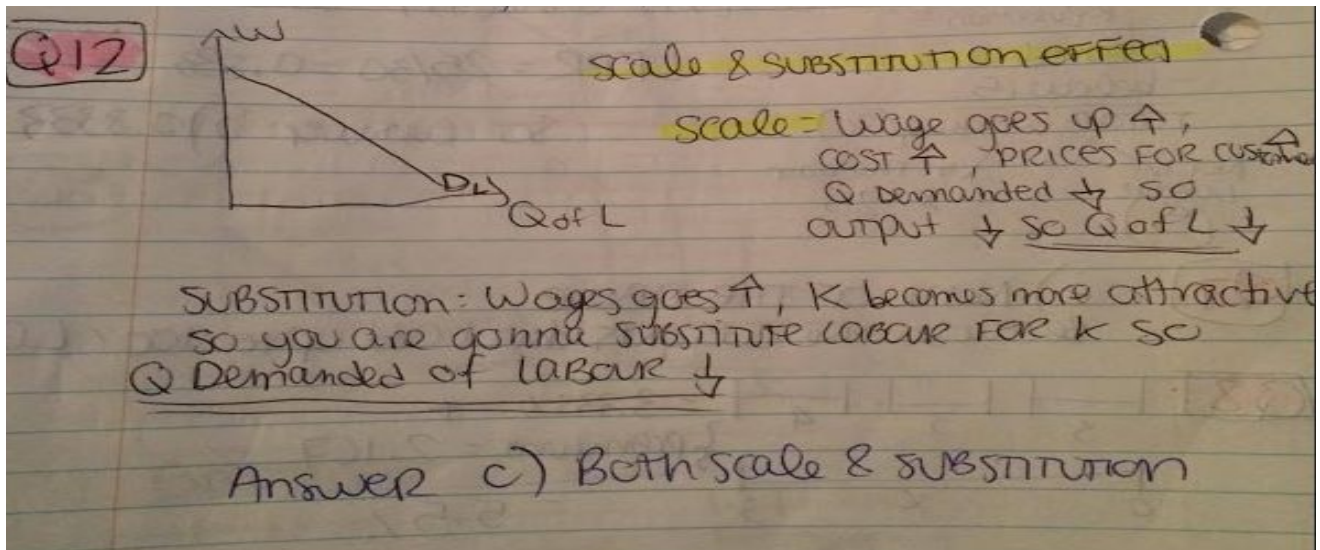 Q12
W
DL
Q of L
Scale & SUBSTITUTION EFFECT
Scale = Wage goes up ↑,
COST ↑, PRICES FOR customer ↑
Q Demanded ↓ so
output ↓ so Q of L ↓
SUBSTITUTION: Wages goes ↑, K becomes more attractive
so you are gonna SUBSTITUTE LABOUR FOR K so
Q Demanded of LABOUR ↓
Answer C) Both scale & SUBSTITUTION